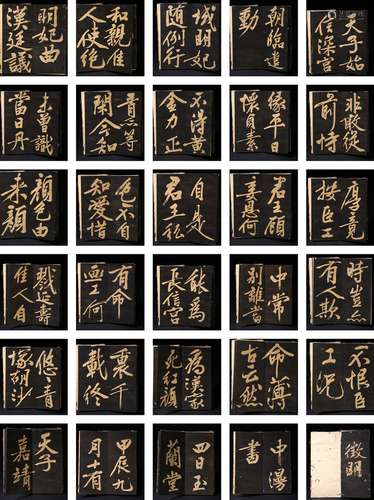 明妃曲
漢廷議
和親准
人使絶
城明妃
随例行
朝臨遣
動
天子
在深宮
未曾識
當日丹
青
今知
不得黄
金力正
緣平日
懷貞素
非敢從
前恃
顔色由
来顔
色不自
知愛惜
自是
君王
君王顧
妾恩何
厚竟
接臣工
戮延壽
佳人自
有命
画工何
能為
長信宮
中常
別離當
時豈無
有人歎
悠悠青
塚胡沙
裹千
載
為漢家
死紅顔
命薄
古云然
不恨臣
工況
天子
嘉靖
甲辰九
月十有
四日玉
蘭堂
中漫
書
徵明